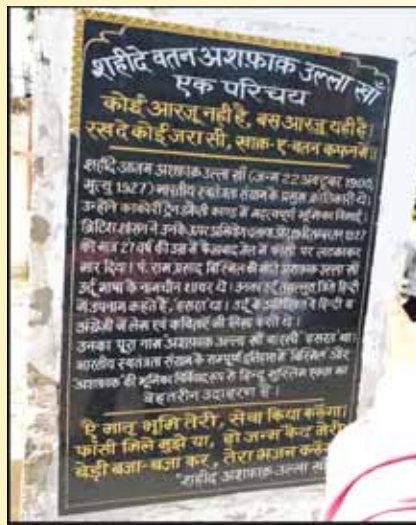 शहीदे वतन अशफ़ाक़ उल्ला खाँ
एक परिचय
कोई आरजू नहीं है, बस आरजू यही है।
रख दे कोई जरा सी, ख़ाक-ए-वतन कफ़न में॥
शहीदे आजम अशफ़ाक़ उल्ला खाँ (जन्म 22 अक्टूबर 1900,
मृत्यु 1927) भारतीय स्वतंत्रता संग्राम के प्रमुख क्रांतिकारी थे।
उन्होंने काकोरी ट्रेन डकैती काण्ड में महत्वपूर्ण भूमिका निभाई।
ब्रिटिश शासन ने उनके ऊपर अभियोग चलाया 1927
को मात्र 27 वर्ष की उम्र में फैजाबाद जेल में फाँसी पर लटकाकर
मार दिया। पं. राम प्रसाद बिस्मिल की भाँति अशफ़ाक़ उल्ला खाँ
उर्दू भाषा के नामचीन शायर थे। उनका उर्दू तखल्लुस, जिसे हिन्दी
में उपनाम कहते हैं, 'हसरत' था। उर्दू के अतिरिक्त वे हिन्दी व
अंग्रेजी में लेख एवं कवितायें भी लिखा करते थे।
उनका पूरा नाम अशफ़ाक़ उल्ला खाँ वारसी 'हसरत' था।
भारतीय स्वतंत्रता संग्राम के सम्पूर्ण इतिहास में बिस्मिल और
अशफ़ाक़ की भूमिका निर्विवाद रूप से हिन्दू मुस्लिम एकता का
बेहतरीन उदाहरण है।
ऐ मातृ भूमि तेरी, सेवा किया करूँगा।
फाँसी मिले मुझे या, हो जन्म कैद मेरी
बेड़ी बजा-बजा कर, तेरा भजन करूँगा
"शहीद अशफ़ाक़ उल्ला खाँ